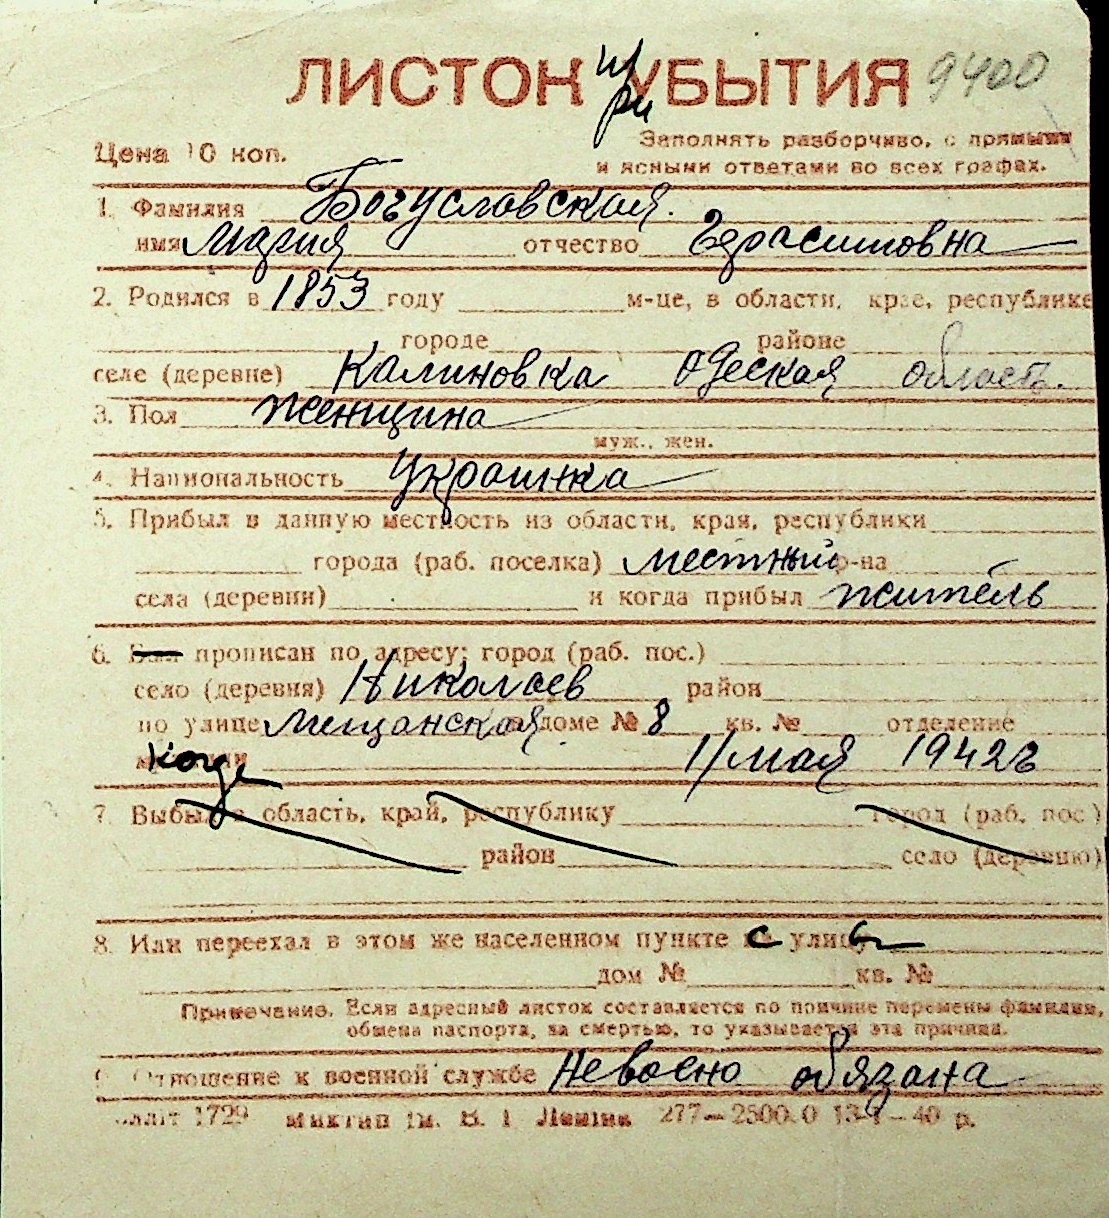 ЛИСТОК при УБЫТИЯ 9400
Цена 10 коп.
Заполнять разборчиво, с прямыми
и ясными ответами во всех графах.
1. Фамилия Богуславская.
имя Мария отчество Герасимовна
2. Родился в 1853 году м-це, в области, крае, республике
городе районе
селе (деревне) Калиновка Одеская область.
3. Пол женщина
муж., жен.
4. Национальность Украинка
5. Прибыл в данную местность из области, края, республики
города (раб. поселка) местный р-на
села (деревни) и когда прибыл житель
6. Был прописан по адресу: город (раб. пос.)
село (деревня) Николаев район
по улице Мещанская в доме № 8 кв. № отделение
когда 11/мая 1942г
7. Выбыл в область, край, республику город (раб. пос.)
район село (деревню)
8. Или переехал в этом же населенном пункте с улицы
дом № кв. №
Примечание. Если адресный листок составляется по причине перемены фамилии,
обмена паспорта, за смертью, то указывается эта причина.
9. Отношение к военной службе Невоено обязана
1729 277—2500.0 13-9-40 р.